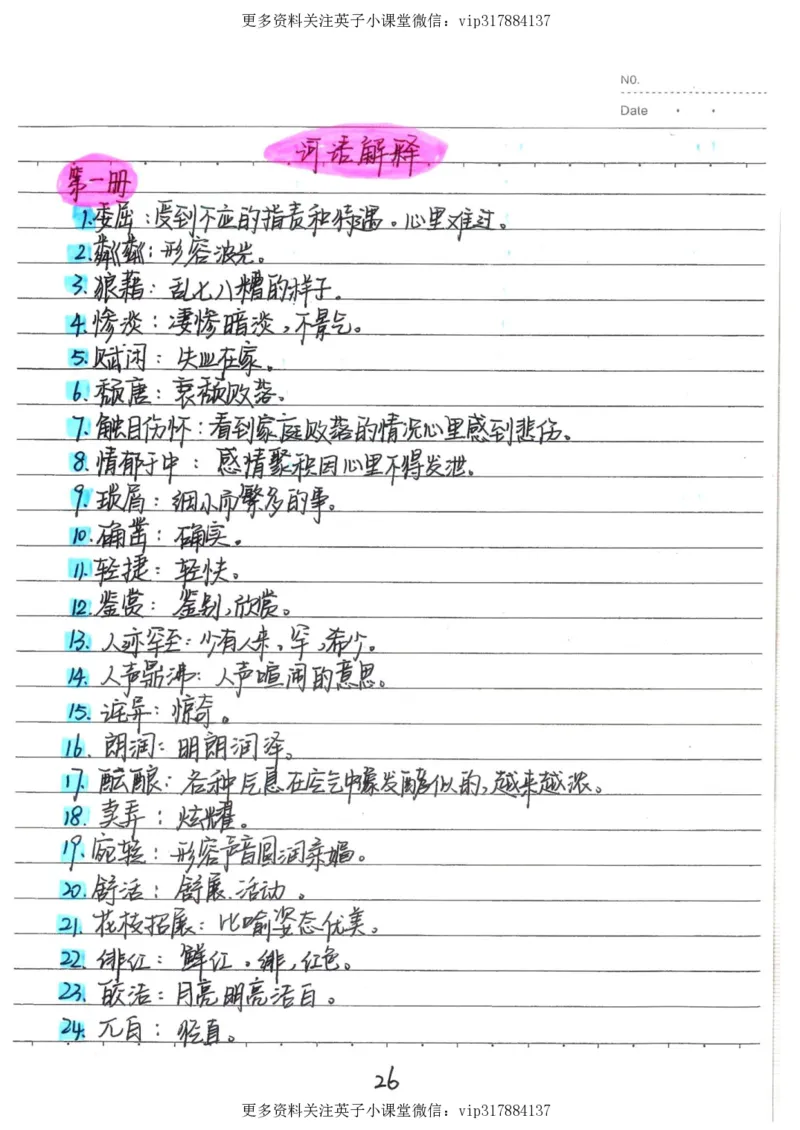 更多资料关注英子小课堂微信：vip317884137
NO.
Date
词语解释
第一册
1.委屈：受到不应的指责和待遇。心里难过。
2.粼粼：形容波光。
3.狼藉：乱七八糟的样子。
4.惨淡：凄惨暗淡，不景气。
5.赋闲：失业在家。
6.颓唐：衰颓败落。
7.触目伤怀：看到家庭败落的情况心里感到悲伤。
8.情郁于中：感情聚积因心里不得发泄。
9.琐屑：细小而繁多的事。
10.确凿：确实。
11.轻捷：轻快。
12.鉴赏：鉴别,欣赏。
13.人迹罕至：少有人来，罕，希少。
14.人声鼎沸：人声喧闹的意思。
15.诧异：惊奇。
16.朗润：明朗润泽。
17.酝酿：各种气息在空气中像发酵似的，越来越浓。
18.卖弄：炫耀。
19.宛转：形容声音圆润柔媚。
20.舒活：舒展.活动。
21.花枝招展：比喻姿态优美。
22.绯红：鲜红。绯，红色。
23.皎洁：月亮明亮洁白。
24.兀自：径直。
26
更多资料关注英子小课堂微信：vip317884137